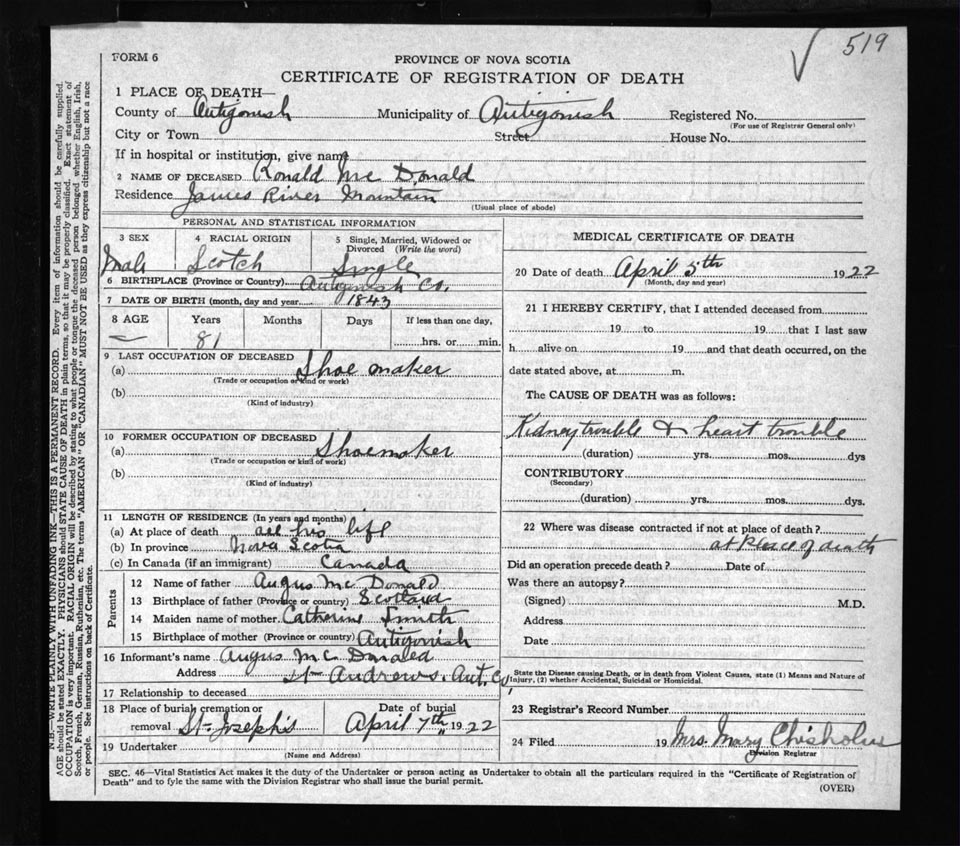 519
FORM 6
PROVINCE OF NOVA SCOTIA
CERTIFICATE OF REGISTRATION OF DEATH
1 PLACE OF DEATH—
County of Antigonish Municipality of Antigonish Registered No.
(For use of Registrar General only)
City or Town Street House No.
If in hospital or institution, give name
2 NAME OF DECEASED Ronald Mc Donald
Residence James River Mountain
(Usual place of abode)
PERSONAL AND STATISTICAL INFORMATION
3 SEX 4 RACIAL ORIGIN 5 Single, Married, Widowed or Divorced (Write the word)
Male Scotch Single
6 BIRTHPLACE (Province or Country) Antigonish Co.
7 DATE OF BIRTH (month, day and year 1843
8 AGE Years Months Days If less than one day,
— 81 hrs. or min.
9 LAST OCCUPATION OF DECEASED
(a) Shoe maker
(Trade or occupation or kind or work)
(b)
(Kind of industry)
10 FORMER OCCUPATION OF DECEASED
(a) Shoemaker
(Trade or occupation or kind of work)
(b)
(Kind of industry)
11 LENGTH OF RESIDENCE (In years and months)
(a) At place of death all his life
(b) In province Nova Scotia
(c) In Canada (if an immigrant) Canada
Parents
12 Name of father Angus Mc Donald
13 Birthplace of father (Province or country) Scotland
14 Maiden name of mother Catherine Smith
15 Birthplace of mother (Province or country) Antigonish
16 Informant's name Angus Mc Donald
Address St Andrews. Ant. Co
17 Relationship to deceased
18 Place of burial, cremation or removal St Joseph's Date of burial April 7th 1922
19 Undertaker
(Name and Address)
MEDICAL CERTIFICATE OF DEATH
20 Date of death April 5th 1922
(Month, day and year)
21 I HEREBY CERTIFY, that I attended deceased from
19 to 19 that I last saw
h alive on 19 and that death occurred, on the
date stated above, at m.
The CAUSE OF DEATH was as follows:
Kidney trouble & heart trouble
(duration) yrs. mos. dys
CONTRIBUTORY
(Secondary)
(duration) yrs. mos. dys.
22 Where was disease contracted if not at place of death?
at place of death
Did an operation precede death? Date of
Was there an autopsy?
(Signed) M.D.
Address
Date
State the Disease causing Death, or in death from Violent Causes, state (1) Means and Nature of
Injury, (2) whether Accidental, Suicidal or Homicidal.
23 Registrar's Record Number
24 Filed 19 Mrs. Mary Chisholm
Division Registrar
SEC. 46—Vital Statistics Act makes it the duty of the Undertaker or person acting as Undertaker to obtain all the particulars required in the "Certificate of Registration of
Death" and to fyle the same with the Division Registrar who shall issue the burial permit.
(OVER)
N.B.—WRITE PLAINLY WITH UNFADING INK—THIS IS A PERMANENT RECORD. Every item of information should be carefully supplied.
AGE should be stated EXACTLY. PHYSICIANS should STATE CAUSE OF DEATH in plain terms, so that it may be properly classified. Exact statement of
OCCUPATION is very important. RACIAL ORIGIN will be described by stating to what people or tongue the deceased person belonged whether English, Irish,
Scotch, French, German, Russian, Ruthenian, etc. The terms "AMERICAN" OR "CANADIAN" MUST NOT BE USED as they express citizenship but not a race
or people. See instructions on back of Certificate.